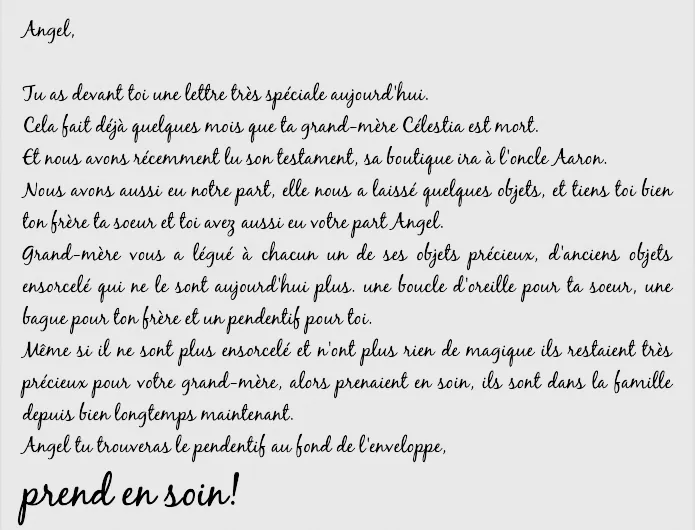 Angel,
Tu as devant toi une lettre très spéciale aujourd'hui.
Cela fait déjà quelques mois que ta grand-mère Célestia est mort.
Et nous avons récemment lu son testament, sa boutique ira à l'oncle Aaron.
Nous avons aussi eu notre part, elle nous a laissé quelques objets, et tiens toi bien
ton frère ta soeur et toi avez aussi eu votre part Angel.
Grand-mère vous a légué à chacun un de ses objets précieux, d'anciens objets
ensorcelé qui ne le sont aujourd'hui plus. une boucle d'oreille pour ta soeur, une
bague pour ton frère et un pendentif pour toi.
Même si il ne sont plus ensorcelé et n'ont plus rien de magique ils restaient très
précieux pour votre grand-mère, alors prenaient en soin, ils sont dans la famille
depuis bien longtemps maintenant.
Angel tu trouveras le pendentif au fond de l'enveloppe,
prend en soin!